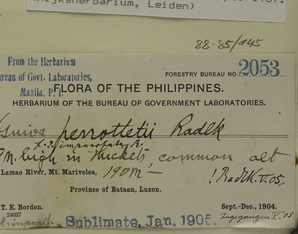 (Rijksherbarium, Leiden)
88-85/145
From the Herbarium
Bureau of Govt. Laboratories,
Manila, P. I.
FORESTRY BUREAU NO. 2053
FLORA OF THE PHILIPPINES.
HERBARIUM OF THE BUREAU OF GOVERNMENT LABORATORIES.
perrottetii Radlk
M. high in thickets, common alt
Lamao River, Mt. Mariveles, 190m
! Radlk. V. 05.
Province of Bataan, Luzon.
T. E. Borden.
Sept.-Dec., 1904.
Sublimate, Jan, 1905.